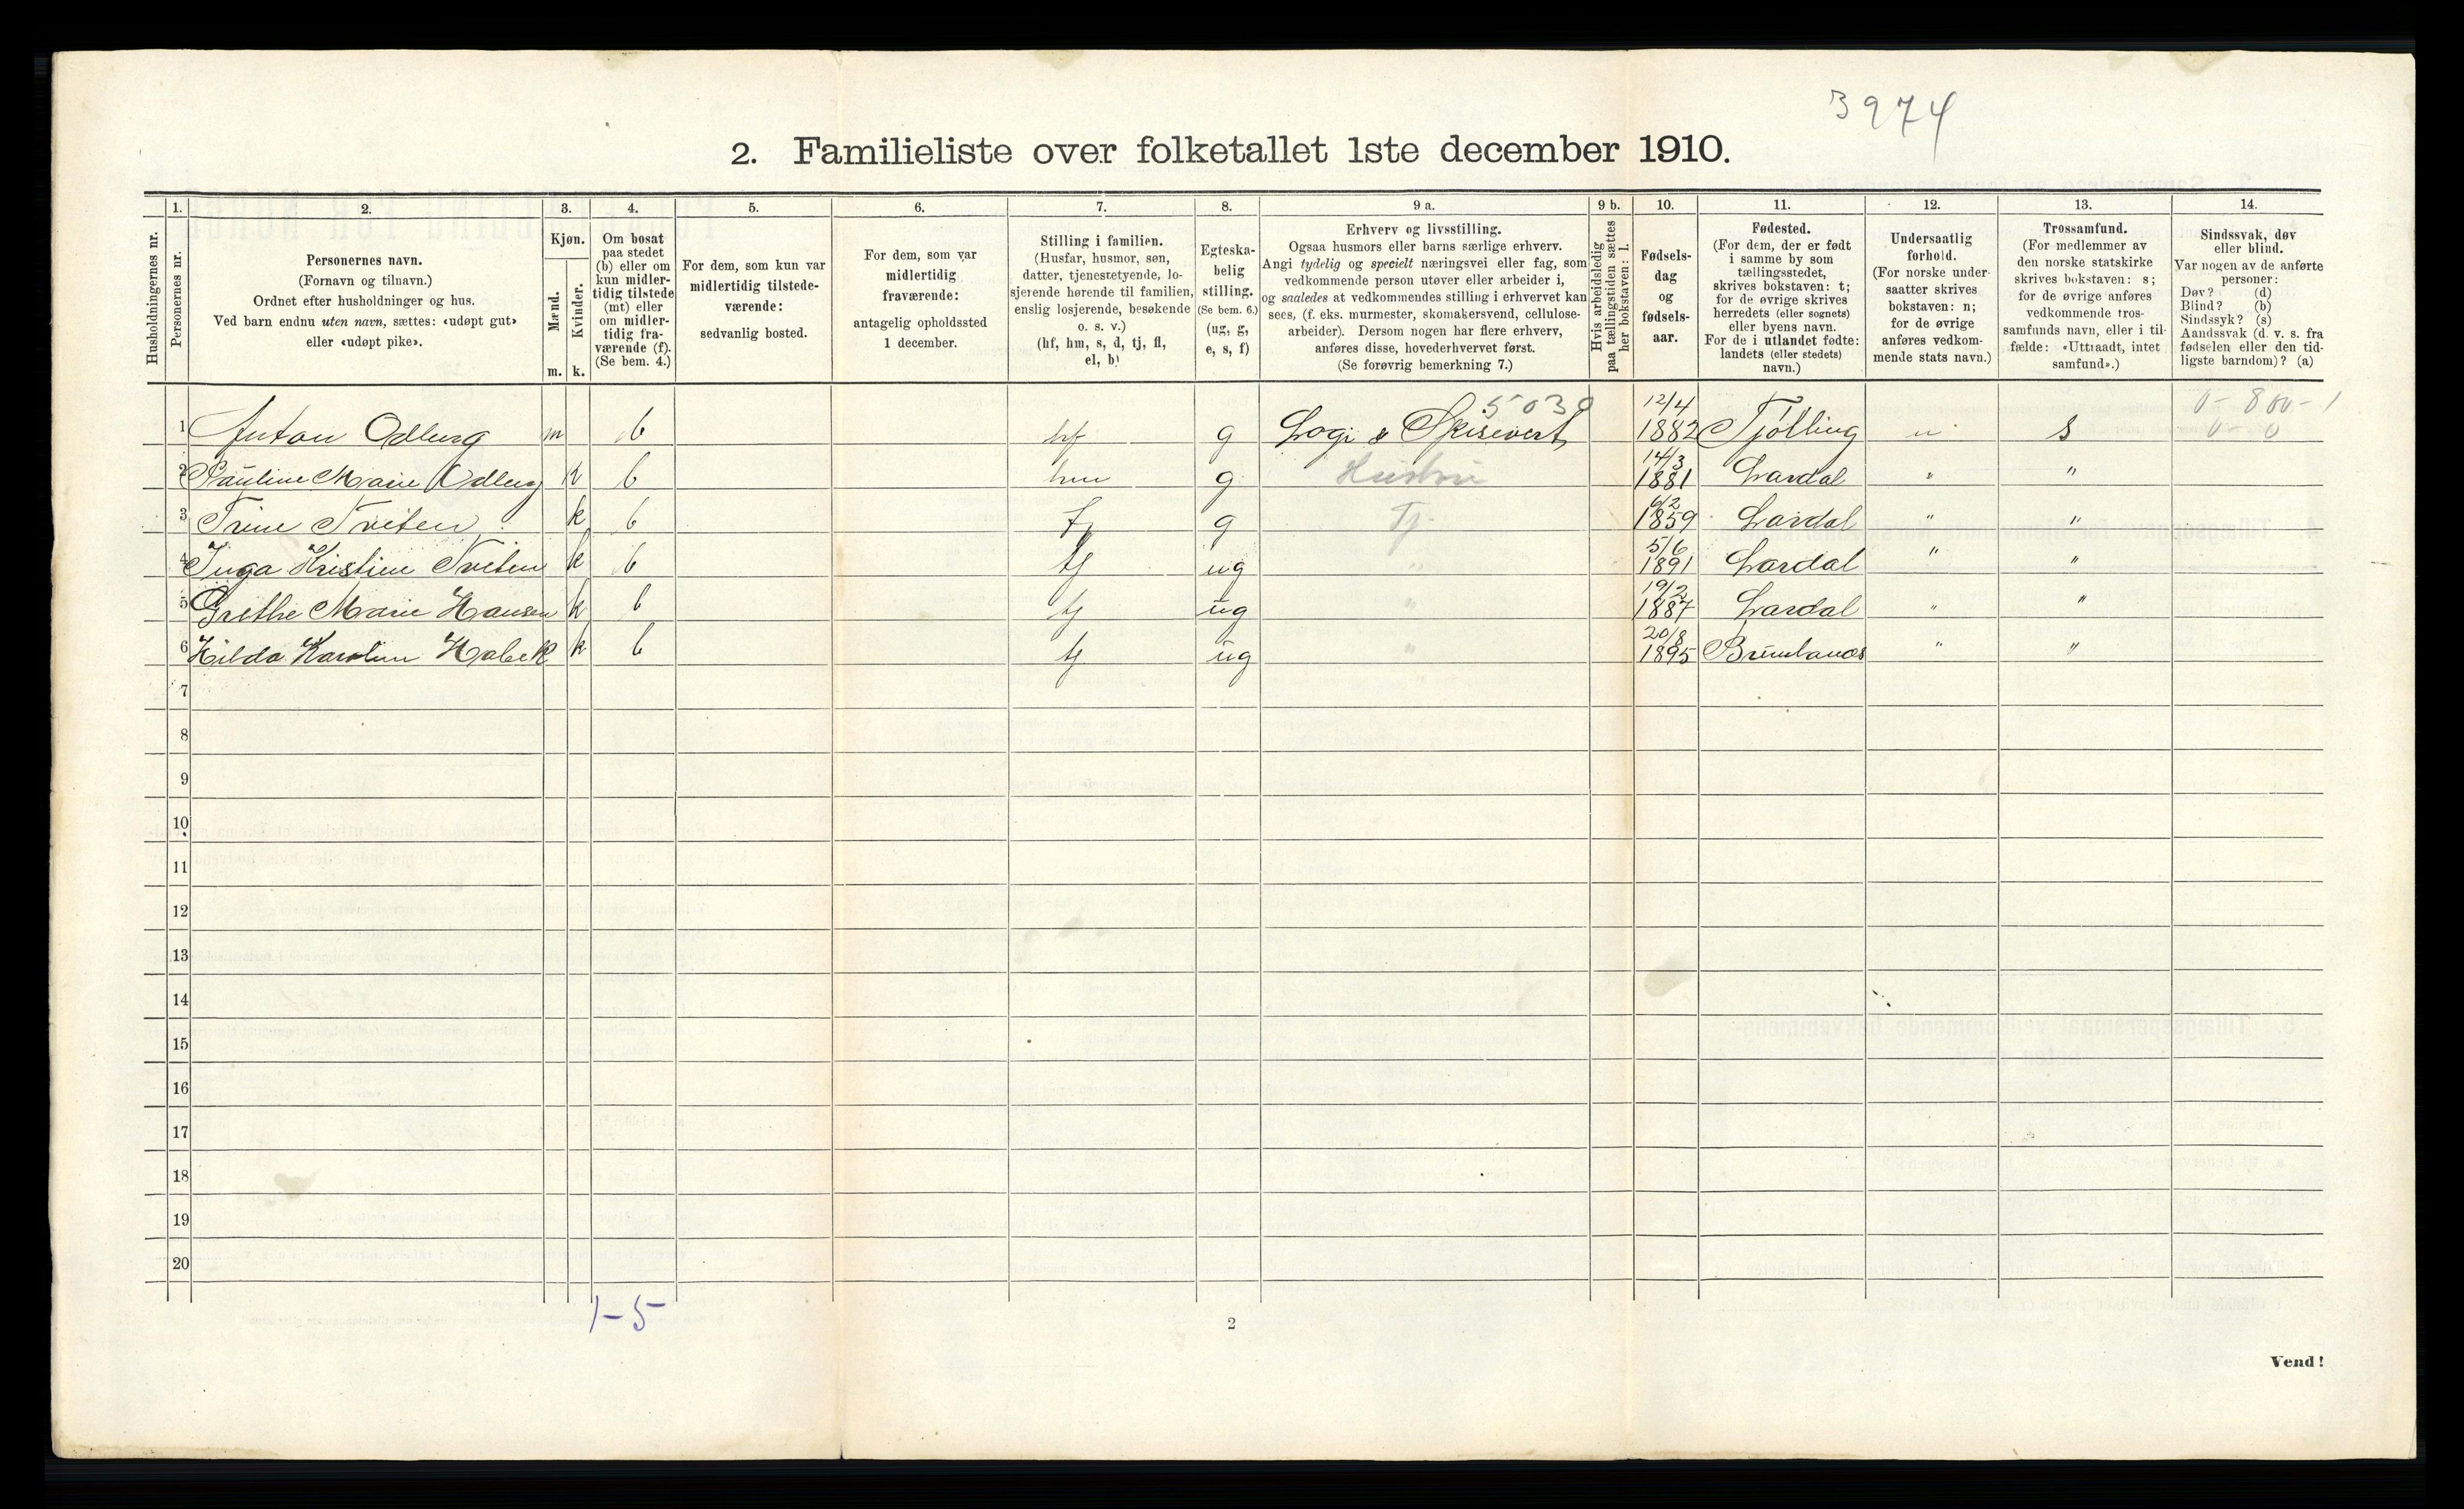 3974
2. Familieliste over folketallet 1ste december 1910.
Husholdningernes nr.
1. Personernes nr.
2. Personernes navn.
(Fornavn og tilnavn.)
Ordnet efter husholdninger og hus.
Ved barn endnu uten navn, sættes: «udøpt gut»
eller «udøpt pike».
3. Kjøn.
Mænd. m.
Kvinder. k.
4. Om bosat
paa stedet
(b) eller om
kun midler-
tidig tilstede
(mt) eller
om midler-
tidig fra-
værende (f).
(Se bem. 4.)
5. For dem, som kun var
midlertidig tilstede-
værende:
sedvanlig bosted.
6. For dem, som var
midlertidig
fraværende:
antagelig opholdssted
1 december.
7. Stilling i familien.
(Husfar, husmor, søn,
datter, tjenestetyende, lo-
sjerende hørende til familien,
enslig losjerende, besøkende
o. s. v.)
(hf, hm, s, d, tj, fl,
el, b)
8. Egteska-
belig
stilling.
(Se bem. 6.)
(ug, g,
e, s, f)
9 a. Erhverv og livsstilling.
Ogsaa husmors eller barns særlige erhverv.
Angi tydelig og specielt næringsvei eller fag, som
vedkommende person utøver eller arbeider i,
og saaledes at vedkommendes stilling i erhvervet kan
sees, (f. eks. murmester, skomakersvend, cellulose-
arbeider). Dersom nogen har flere erhverv,
anføres disse, hovederhvervet først.
(Se forøvrig bemerkning 7.)
9 b. Hvis arbeidsledig
paa tællingstiden sættes
her bokstaven: l.
10. Fødsels-
dag
og
fødsels-
aar.
11. Fødested.
(For dem, der er født
i samme by som
tællingsstedet,
skrives bokstaven: t;
for de øvrige skrives
herredets (eller sognets)
eller byens navn.
For de i utlandet fødte:
landets (eller stedets)
navn.)
12. Undersaatlig
forhold.
(For norske under-
saatter skrives
bokstaven: n;
for de øvrige
anføres vedkom-
mende stats navn.)
13. Trossamfund.
(For medlemmer av
den norske statskirke
skrives bokstaven: s;
for de øvrige anføres
vedkommende tros-
samfunds navn, eller i til-
fælde: «Uttraadt, intet
samfund».)
14. Sindssvak, døv
eller blind.
Var nogen av de anførte
personer:
Døv? (d)
Blind? (b)
Sindssyk? (s)
Aandssvak (d. v. s. fra
fødselen eller den tid-
ligste barndom)? (a)
5030 0-800-1
1 Anton Odberg m b hf g Logi & Spisevert 12/4 1882 Tjølling n s 0-0
2 Pauline Marie Odberg k b hm g Hustru 14/3 1881 Lardal " "
3 Trine Tveten k b tj g Tj. 6/2 1859 Lardal " "
4 Inga Kristine Tveten k b tj ug " 5/6 1891 Lardal " "
5 Grethe Marie Hansen k b tj ug " 19/2 1887 Lardal " "
6 Hilda Karoline Holbek k b tj ug " 20/8 1895 Brunlanæs " "
7
8
9
10
11
12
13
14
15
16
17
18
19
20
1-5
2
Vend!